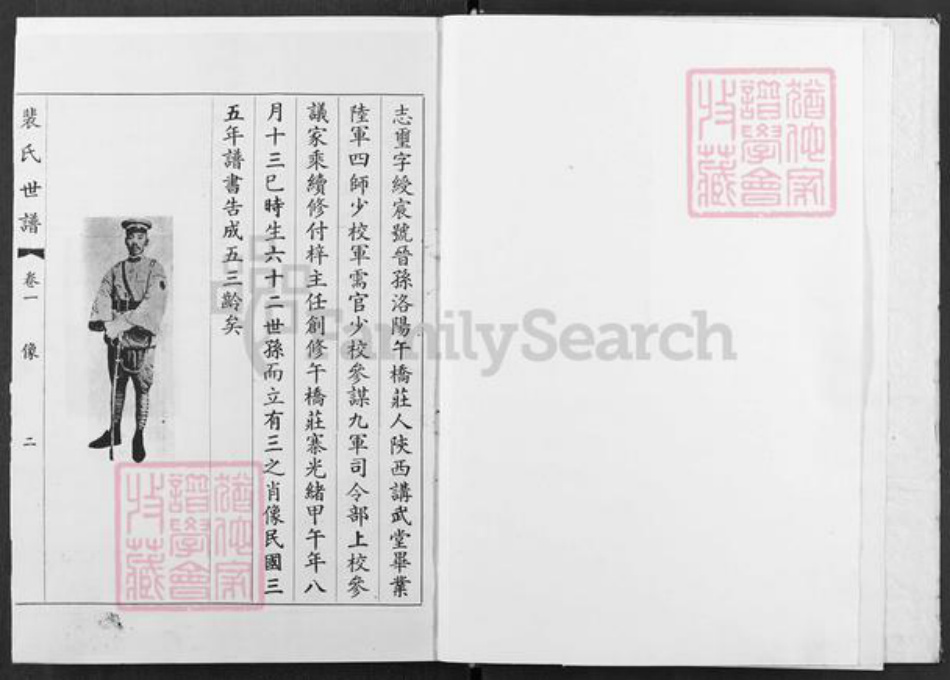 志璽字綬宸號晉孫洛陽午橋莊人陝西講武堂畢業
陸軍四師少校軍需官少校參謀九軍司令部上校參
議家乘續修付梓主任創修午橋莊寨光緒甲午年八
月十三巳時生六十二世孫而立有三之肖像民國三
五年譜書告成五三齡矣
裴氏世譜 卷一 像 二
FamilySearch